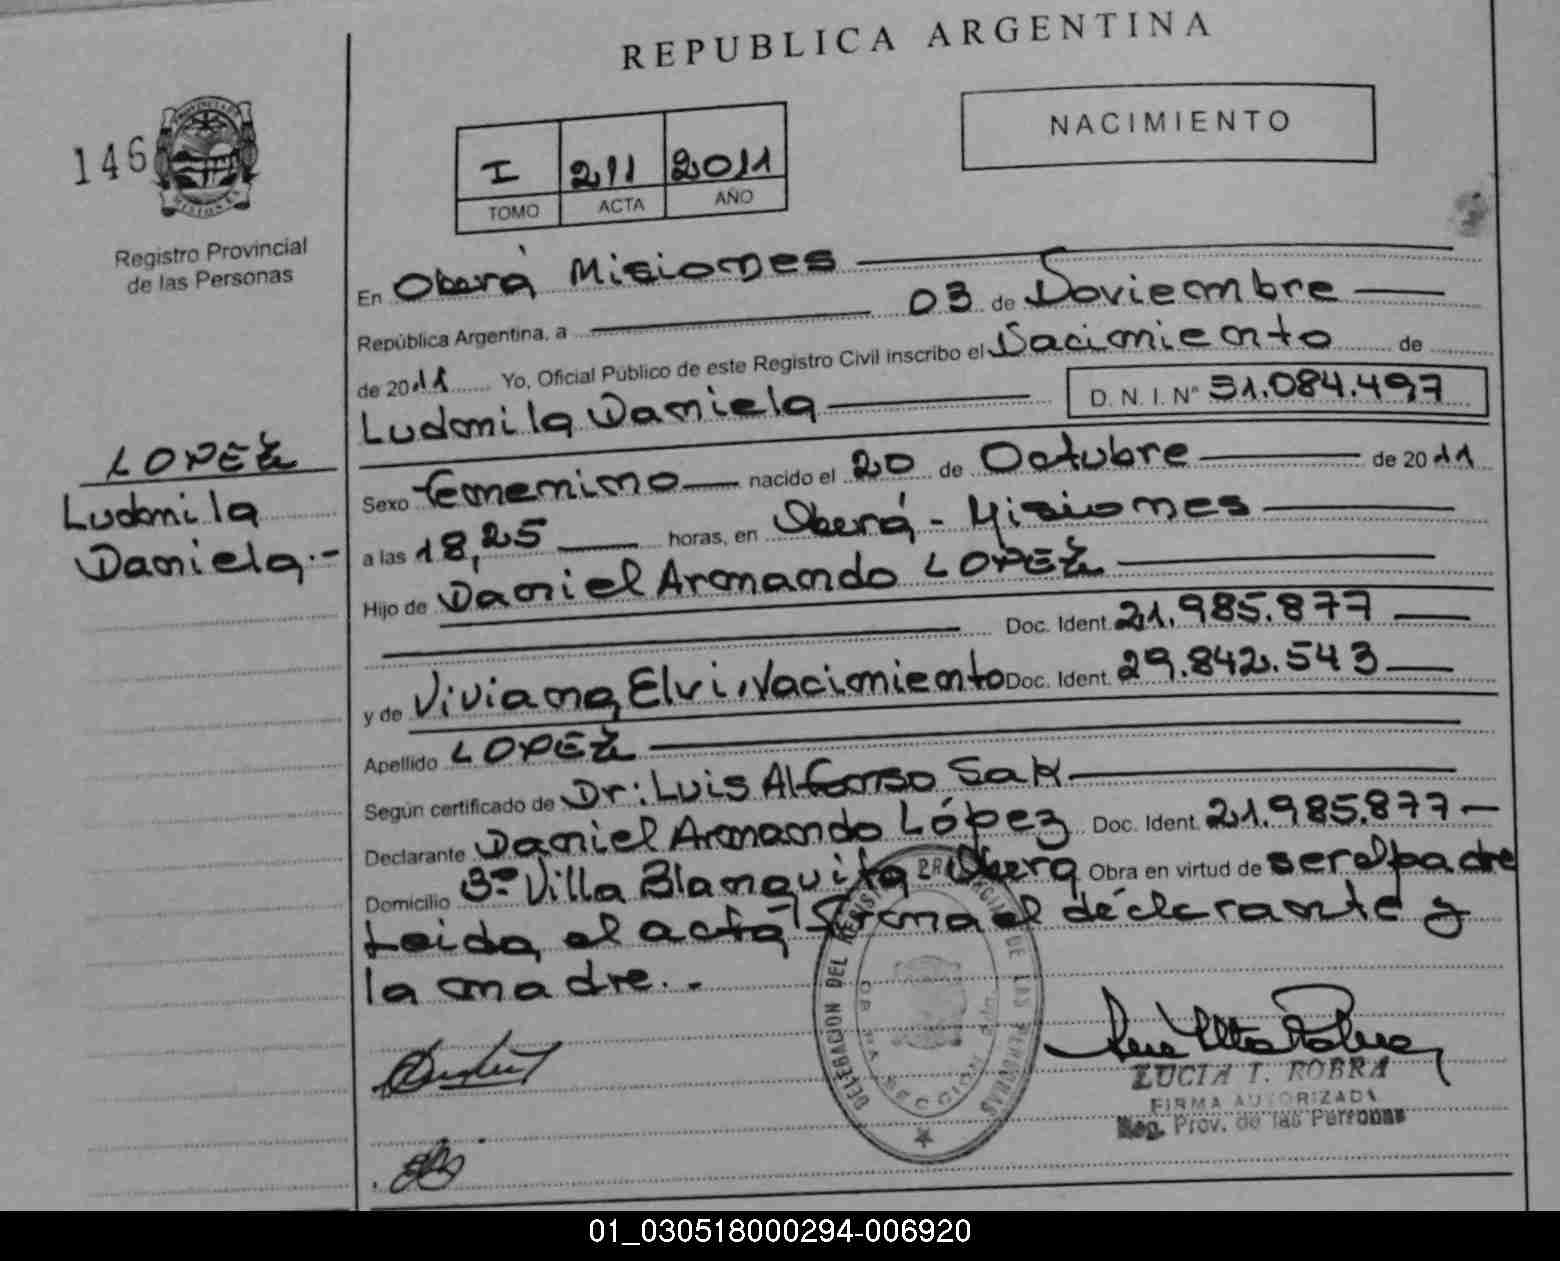 REPUBLICA ARGENTINA
NACIMIENTO
146
PROVINCIA DE
MISIONES
Registro Provincial
de las Personas
I 211 2011
TOMO ACTA AÑO
En Oberá Misiones
República Argentina, a 03 de Noviembre
de 2011 Yo, Oficial Público de este Registro Civil inscribo el Nacimiento de
Ludmila Daniela D. N. I. Nº 51.084.497
LOPEZ
Ludmila
Daniela.-
Sexo femenino nacido el 20 de Octubre de 2011
a las 18,25 horas, en Oberá - Misiones
Hijo de Daniel Armando LOPEZ
Doc. Ident. 21.985.877
y de Viviana Elvi Nacimiento Doc. Ident. 29.842.543
Apellido LOPEZ
Según certificado de Dr: Luis Alfonso Sak
Declarante Daniel Armando López Doc. Ident. 21.985.877-
Domicilio Bº Villa Blanquita Oberá Obra en virtud de ser el padre
Leida el acta firma el déclarante y
la madre.-
DELEGACION DEL REGISTRO PROVINCIAL DE LAS PERSONAS
LUCIA T. ROBRA
FIRMA AUTORIZADA
Reg. Prov. de las Personas
01_030518000294-006920